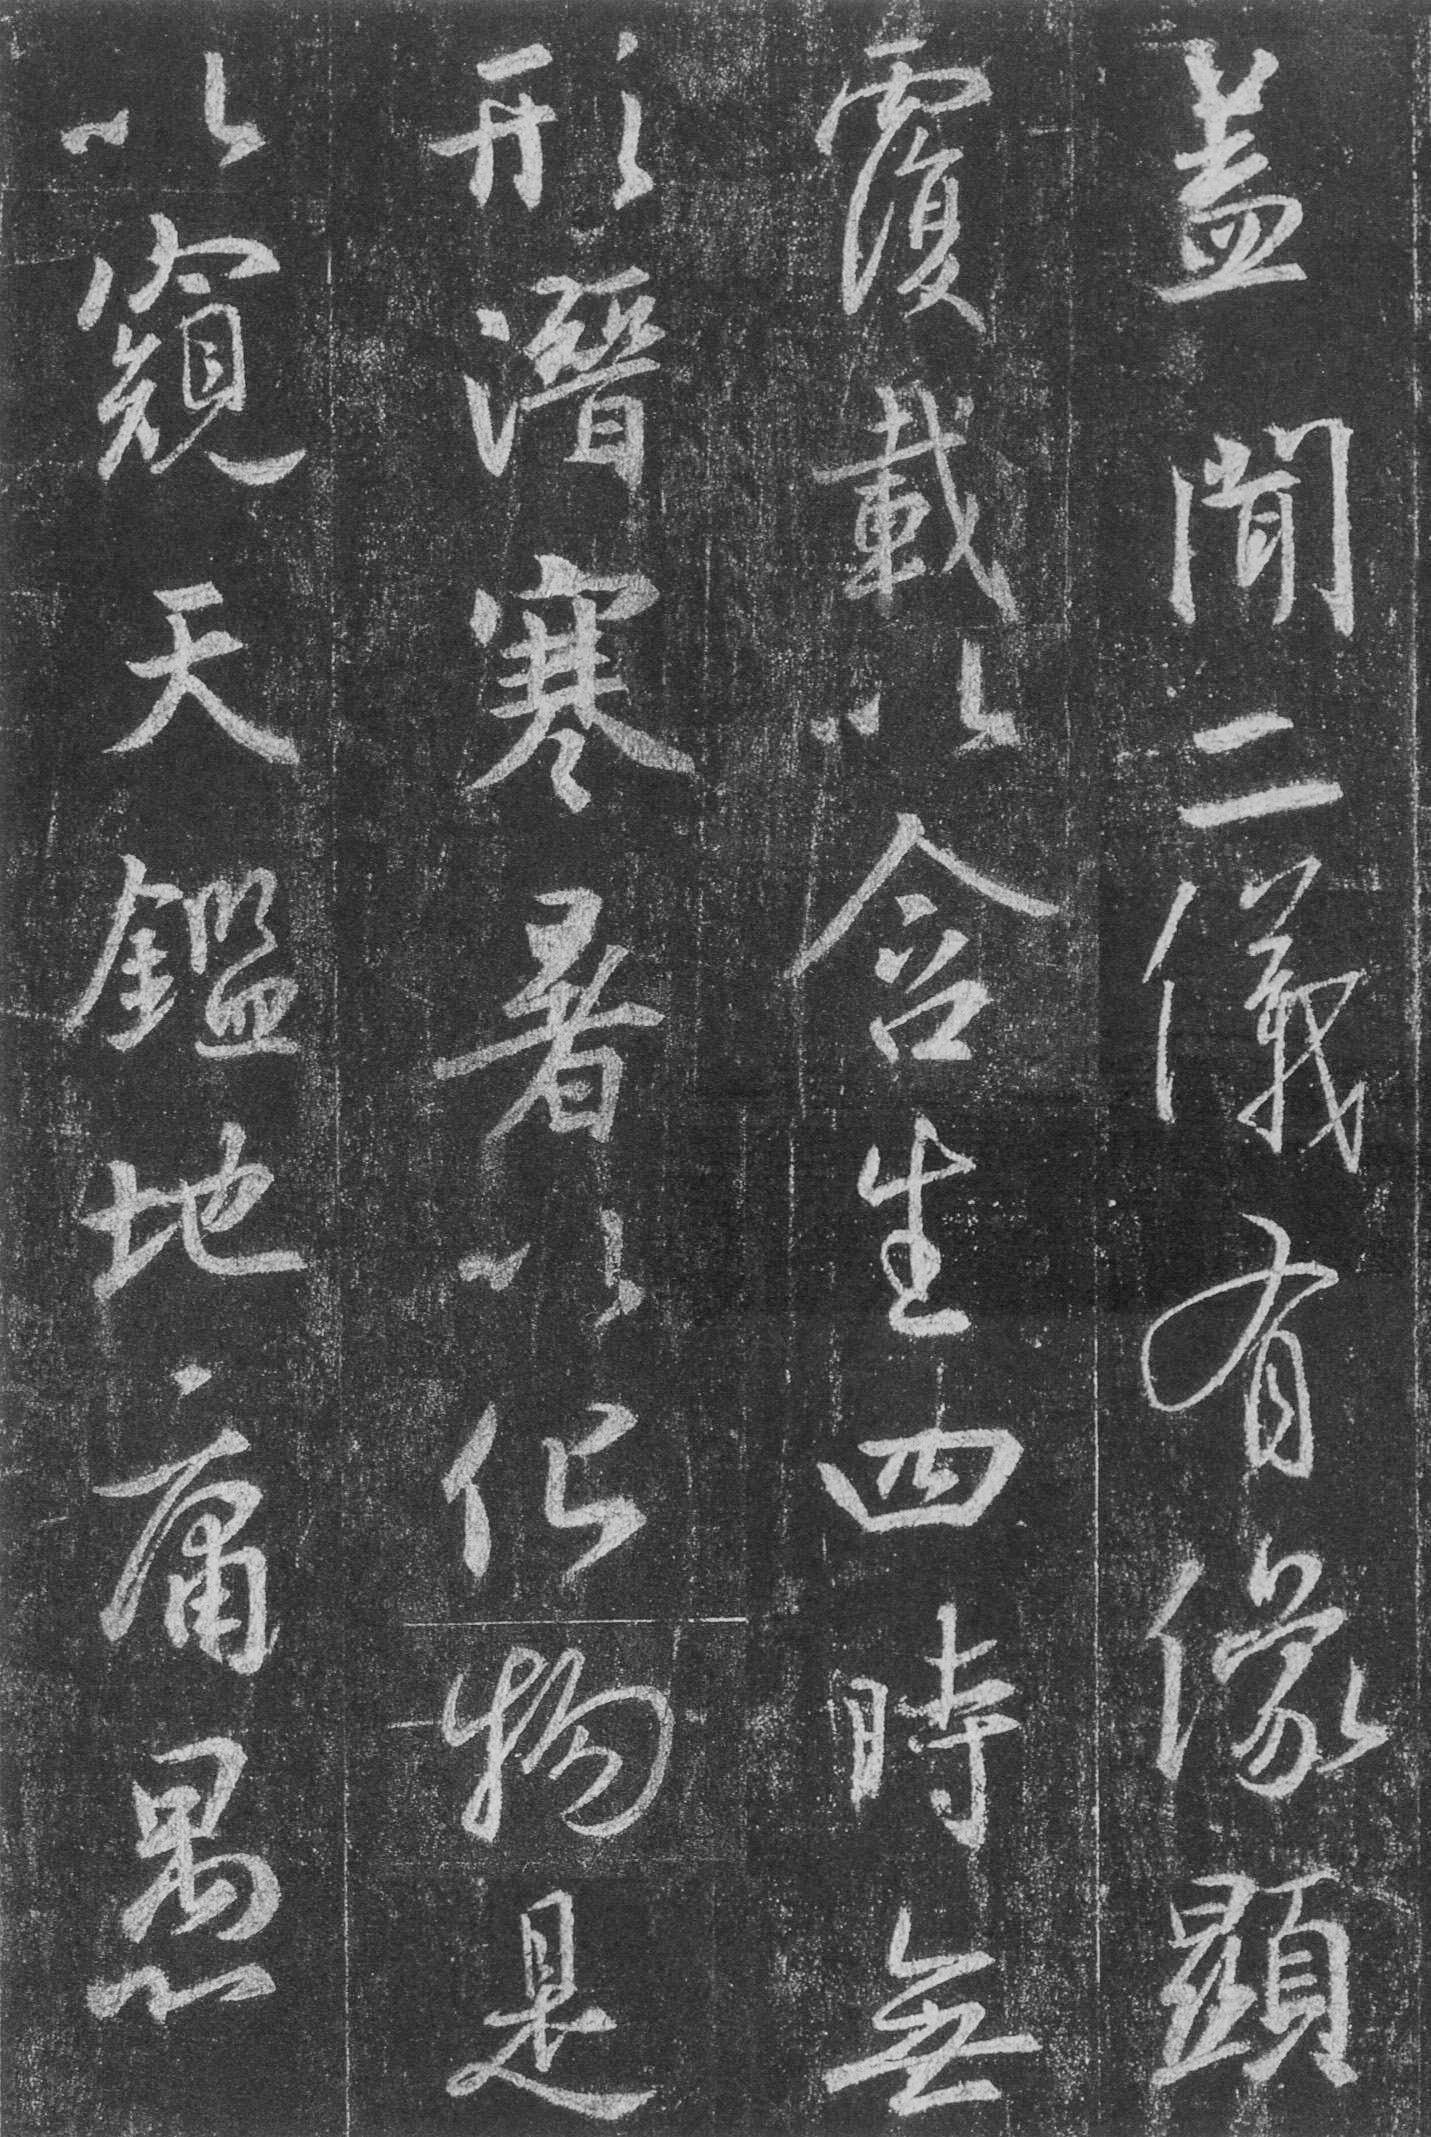 蓋聞二儀有像顯
覆載以含生四時無
形潛寒暑以化物是
以窺天鑑地庸愚